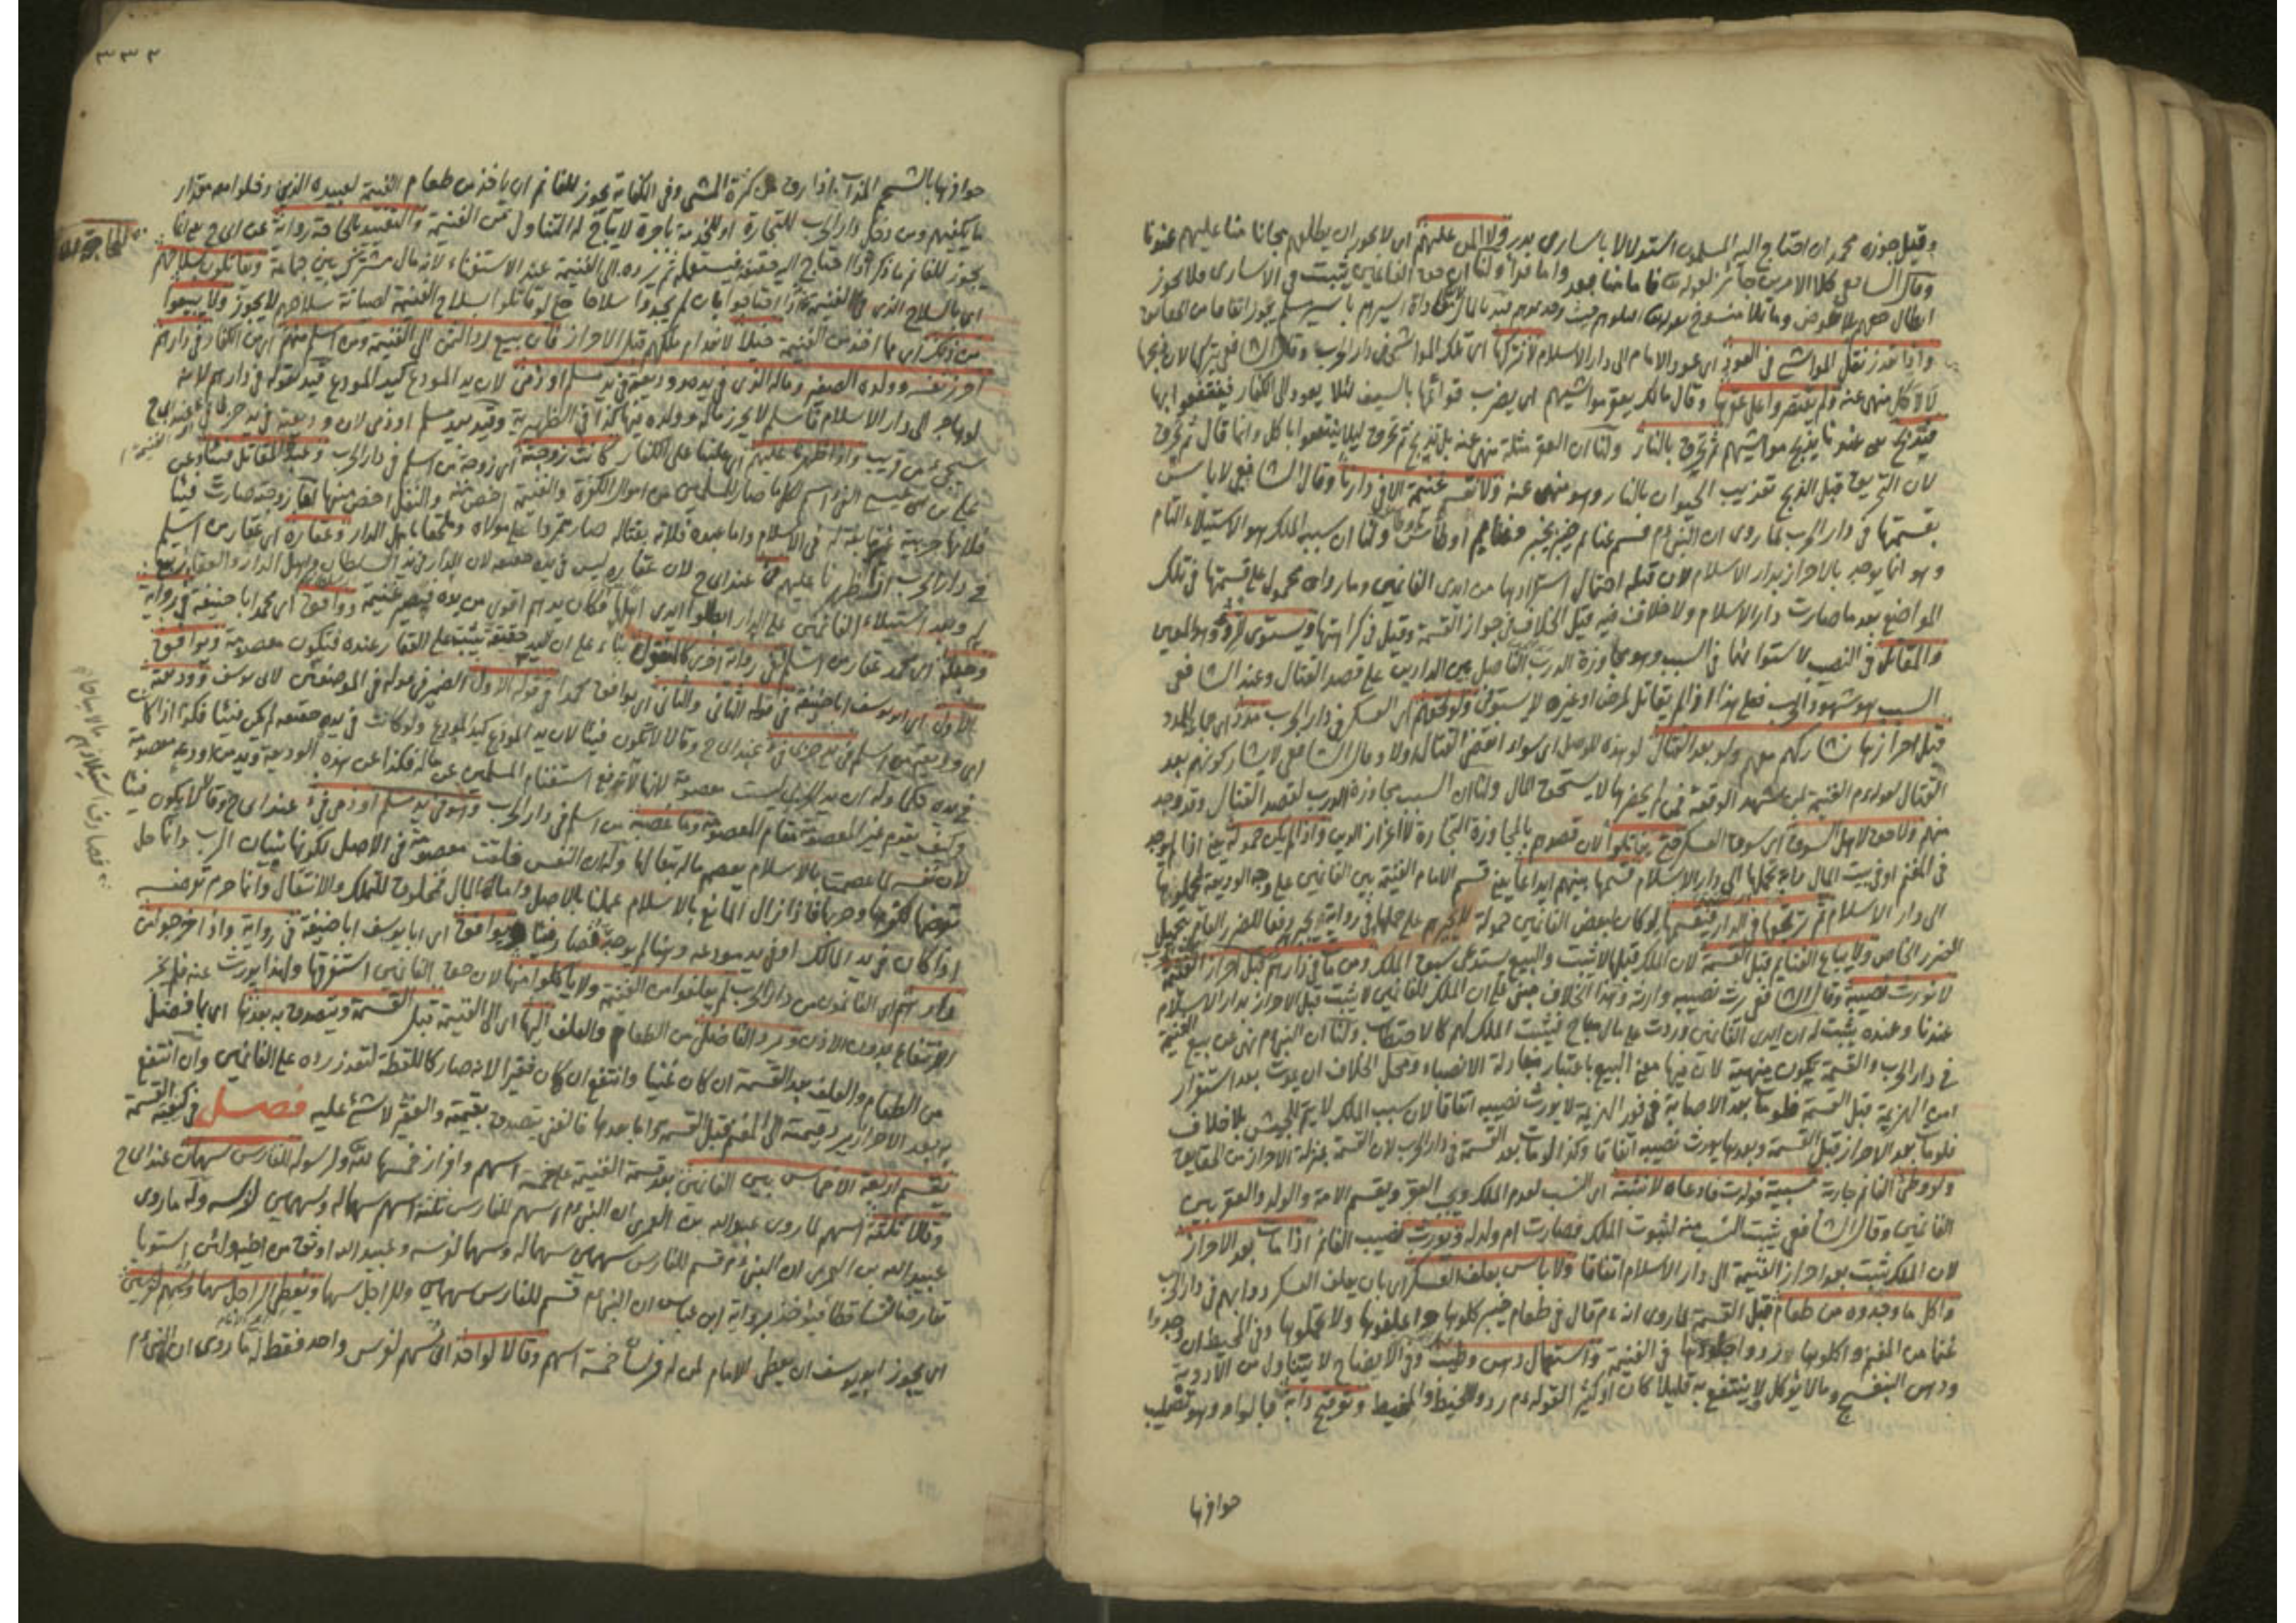 وقيل جوزه محمد ان احتاج اليه المسلمون استدلالا باسارى بدر ولا المن عليهم اى لا يجوز ان يطلقهم مجانا منا عليهم عندنا
وقال الشافعي كلا الامرين جائز لقوله تعالى فاما منا بعد واما فداء ولنا ان حق الغانمين يثبت فى الاسارى فلا يجوز
ابطال حقهم بلا عوض وما تلاه منسوخ بقوله تعالى اقتلوهم حيث وجدتموهم قيد بالمال لان مفاداة اسيرهم باسير مسلم يجوز اتفاقا من الحقائق
واذا تعذر نقل المواشى فى العود اى عود الامام الى دار الاسلام لا نتركها اى تلك المواشى فى دار الحرب وقال الشافعي يتركها لان ذبحها
لا لاكل منهى عنه ولم يقتصروا على عقرها وقال مالك يعقر مواشيهم اى يضرب قوائمها بالسيف لئلا يعود الى الكفار فينتفعوا بها
فتذبح يعنى عندنا يذبح مواشيهم ثم تحرق بالنار ولنا ان العقر مثلة منهى عنه بل تذبح ثم تحرق ليلا ينتفعوا باكل وانما قال ثم تحرق
لان التحريق قبل الذبح تعذيب الحيوان بالنار وهو منهى عنه ولا تقسم غنيمة الا فى دارنا وقال الشافعي لا باس
بقسمتها فى دار الحرب لما روى ان النبى ءم قسم غنائم خيبر بخيبر وغنائم اوطاس باوطاس ولنا ان سبب الملك هو الاستيلاء التام
وهو انما يوجد بالاحراز بدار الاسلام لان قبله احتمال استردادها من ايدى الغانمين وما رواه محمول على قسمتها فى تلك
المواضع بعد ما صارت دار الاسلام ولا خلاف فيه قيل الخلاف فى جواز القسمة وقيل فى كراهتها ويستوى الردء وهو المعين
والمقاتل فى النصيب لاستوائهما فى السبب وهو مجاوزة الدرب الفاصل بين الدارين على قصد القتال وعند الشافعي
السبب هو شهود الحرب فعلى هذا اذا لم يقاتل لمرض او غيره لا يستوى ولو لحقهم اى العسكر فى دار الحرب مدد اى جماعة المدد
قبل احرازها نشاركهم معهم ولو بعد القتال لو هذه للوصل اى سواء انقضى القتال اولا وقال الشافعي لا يشاركونهم بعد
القتال لقوله ءم الغنيمة لمن شهد الوقعة فمن لم يحضرها لا يستحق المال ولنا ان السبب مجاوزة الدرب لقصد القتال وقد وجد
منهم ولا حق لاهل السوق اى سوق العسكر حتى يقاتلوا لان قصدهم بالمجاوزة التجارة لا اعزاز الدين واذا لم يكن حمولة يعنى اذا لم يوجد
فى المغنم او فى بيت المال دابة تحملها الى دار الاسلام قسمها بينهم ايداعا يعنى قسم الامام الغنيمة بين الغانمين على وجه الوديعة ليحملوها
الى دار الاسلام ثم نرتجعها فى الدار فنقسمها ولو كان لبعض الغانمين حمولة لا يجبرهم على حملها فى رواية ويجبر دفعا للضرر العام بتحمل
الضرر الخاص ولا يباع الغنائم قبل القسمة لان الملك قبلها لا يثبت والبيع يستدعى سبق الملك ومن مات فى دارهم قبل احراز الغنيمة
لا نورث نصيبه وقال الشافعي يرث نصيبه وارثه وهذا الخلاف مبنى على ان الملك للغانمين لا يثبت قبل الاحراز بدار الاسلام
عندنا وعنده يثبت له ان ايدى الغانمين وردت على مال مباح فيثبت الملك لهم كالاحتطاب ولنا ان النبى ءم نهى عن بيع الغنيمة
فى دار الحرب والقسمة يكون منهية لان فيها معنى البيع باعتبار مبادلة الانصباء ومحل الخلاف ان يموت بعد استقرار
امر الهزيمة قبل القسمة فلو مات بعد الاصابة فى فور الهزيمة لا يورث نصيبه اتفاقا لان سبب الملك لا يتم للجيش بلا خلاف
فلو مات بعد الاحراز قبل القسمة وبعدها يورث نصيبه اتفاقا وكذا لو مات بعد القسمة فى دار الحرب لان القسمة بمنزلة الاحراز من الحقايق
ولو وطئ الغانم جارية مسبية فولدت فادعاه لا نثبته اى النسب لعدم الملك ويجب العقر ويقسم الامة والولد والعقر بين
الغانمين وقال الشافعي يثبت النسب منه لثبوت الملك فصارت ام ولد له ونورث نصيب الغانم اذا مات بعد الاحراز
لان الملك يثبت بعد احراز الغنيمة الى دار الاسلام اتفاقا ولا باس بعلف العسكر اى بان يعلف العسكر دوابهم فى دار الحرب
واكل ما وجدوه من طعام قبل القسمة لما روى انه ءم قال فى طعام خيبر كلوها واعلفوها ولا تحملوها وفى المحيط ان وجدوا
غنما من المغنم واكلوها ردوا جلودها فى الغنيمة واستعمال دهن وطيب وفى الايضاح لا يتناول من الادوية
ودهن البنفسج وما لا يؤكل لا ينتفع به قليلا كان او كثيرا لقوله ءم ردوا الخيط والمخيط وتوقيح دابة بالواو وهو تصليب
حوافرها
٣٣٢
حوافرها بالشحم المذاب اذا رق من كثرة المشى وفى الكفاية يجوز للغانم ان ياخذ من طعام الغنيمة لعبيده الذين دخلوا معه مقدار
ما يكفيهم ومن دخل دار الحرب للتجارة او للخدمة باجرة لا يباح له التناول من الغنيمة والتقييد بالحاجة رواية عن ابى ح يعنى انما
يجوز للغانم ما ذكر اذا احتاج اليه حقيقة فيستعمله ثم يرده الى الغنيمة عند الاستغناء لانه مال مشترك بين جماعة ويقاتلون بسلاحهم
اى بالسلاح الذى فى الغنيمة اذا احتاجوا بان لم يجدوا سلاحا حتى لو قاتلوا بسلاح الغنيمة لصيانة سلاحهم لا يجوز ولا يبيعوا
من ذلك اى مما اخذ من الغنيمة شيئا لانعدام ملكهم قبل الاحراز فان بيع رد الثمن الى الغنيمة ومن اسلم منهم اى من الكفار فى دارهم
احرز نفسه وولده الصغير وماله الذى فى يده ووديعة فى يد مسلم او ذمى لان يد المودع كيد المودع قيد بقوله فى دارهم لانه
لو هاجر الى دار الاسلام فاسلم لا يحرز ماله وولده فيها كذا فى الظهيرية وقيد بيد مسلم او ذمى لان وديعته فى يد حربى فى عند ابى ح
سيجئ عن قريب واذا ظهرنا عليهم اى غلبنا على الكفار كانت زوجته اى زوجة من اسلم فى دار الحرب وعبده المقاتل فيئا وعن
على بن عيسى الفئ اسم لكل ما صار للمسلمين من اموال الكفرة والغنيمة اخص منه والنفل اخص منها اما زوجته صارت فيئا
فلانها حربية غير تابعة له فى الاسلام واما عبده فلانه بقتاله صار متمردا على مولاه وملحقا باهل الدار وعقاره اى عقار من اسلم
فى دار الحرب اذا ظهرنا عليهم فئ عند ابى ح لان عقاره ليس فى يده حقيقة لان الدار فى يد السلطان واهل الدار والعقار تبع
لها وبعد استيلاء الغانمين على الدار ابطلوا ايدى اهلها فكان يدهم اقوى من يده فيصير غنيمة ووافق اى محمد ابا حنيفة فى رواية
وجعله اى محمد عقار من اسلم فى رواية اخرى كالمنقول بناء على ان اليد حقيقة يثبت على العقار عنده فيكون معصومة ويوافق
الاول اى ابو يوسف ابا حنيفة فى قوله الثانى والثانى اى يوافق محمدا فى قوله الاول الضمير فى قوله فى الموضعين لابى يوسف ووديعته
اى وديعة من اسلم فى يد حربى فئ عند ابى ح وقالا لا يكون فيئا لان يد المودع كيد المودع ولو كانت فى يده حقيقة لم يكن فيئا فكذا اذا كان
فى يده حكما وله ان يد الحربى ليست معصومة لانها لا تدفع استغنام المسلمين عن ماله فكذا عن هذه الوديعة ويد من اودعه معصومة
وكيف يقوم غير المعصومة مقام المعصومة وما غصبه من اسلم فى دار الحرب وهو فى يد مسلم او ذمى فئ عند ابى ح وقالا لا يكون فيئا
لان نفسه لما عصمت بالاسلام يعصم ماله تبعا لها وله ان النفس خلقت معصومة فى الاصل لكونها بنيان الرب وانما حل
تعرضها لكفرها وحرابها فاذا زال المانع بالاسلام عملنا بالاصل واما المال فمخلوق للتملك والانتقال وانما حرم تعرضه
اذا كان فى يد المالك او فى يد مودعه وههنا لم يوجد فصار فيئا ويوافق اى ابا يوسف ابا حنيفة فى رواية واذا خرجوا من
دارهم اى الغانمون من دار الحرب لم يعلفوا من الغنيمة ولا ياكلوا منها لان حق الغانمين استقر فيها ولهذا يورث عنه فلم يجز
الانتفاع بدون الاذن ويرد الفاضل من الطعام والعلف اليها اى الى الغنيمة قبل القسمة ويتصدق به بعدها اى بما فضل
من الطعام والعلف بعد القسمة ان كان غنيا وانتفع ان كان فقيرا لانه صار كاللقطة لتعذر رده على الغانمين وان انتفع
به بعد الاحراز يرد قيمته الى المغنم قبل القسمة واما بعدها فالغنى يتصدق بقيمته والفقير لا شئ عليه فصل فى كيفية القسمة
تقسم اربعة الاخماس بين الغانمين بعد قسمة الغنيمة على خمسة اسهم وافراز خمسها لله ولرسوله للفارس سهمان عند ابى ح
وقالا ثلثة اسهم لما روى عبد الله بن العمرى ان النبى ءم اسهم للفارس ثلثة اسهم سهما له وسهمين لفرسه وله ما روى
عبيد الله بن العمرى ان النبى ءم قسم للفارس سهمين سهما له وسهما لفرسه وعبيد الله اوثق من اخيه ولئن استويا
تعارضا تساقطا فيؤخذ برواية ابن عباس ان النبى ءم قسم للفارس سهمين وللراجل سهما ويعطى الراجل سهما ويسهم لفرسين
اى يجوز ابو يوسف ان يعطى الامام لمن له فرسان خمسة اسهم وقالا لواحد اى يسهم لفرس واحد فقط له ما روى ان النبى ءم